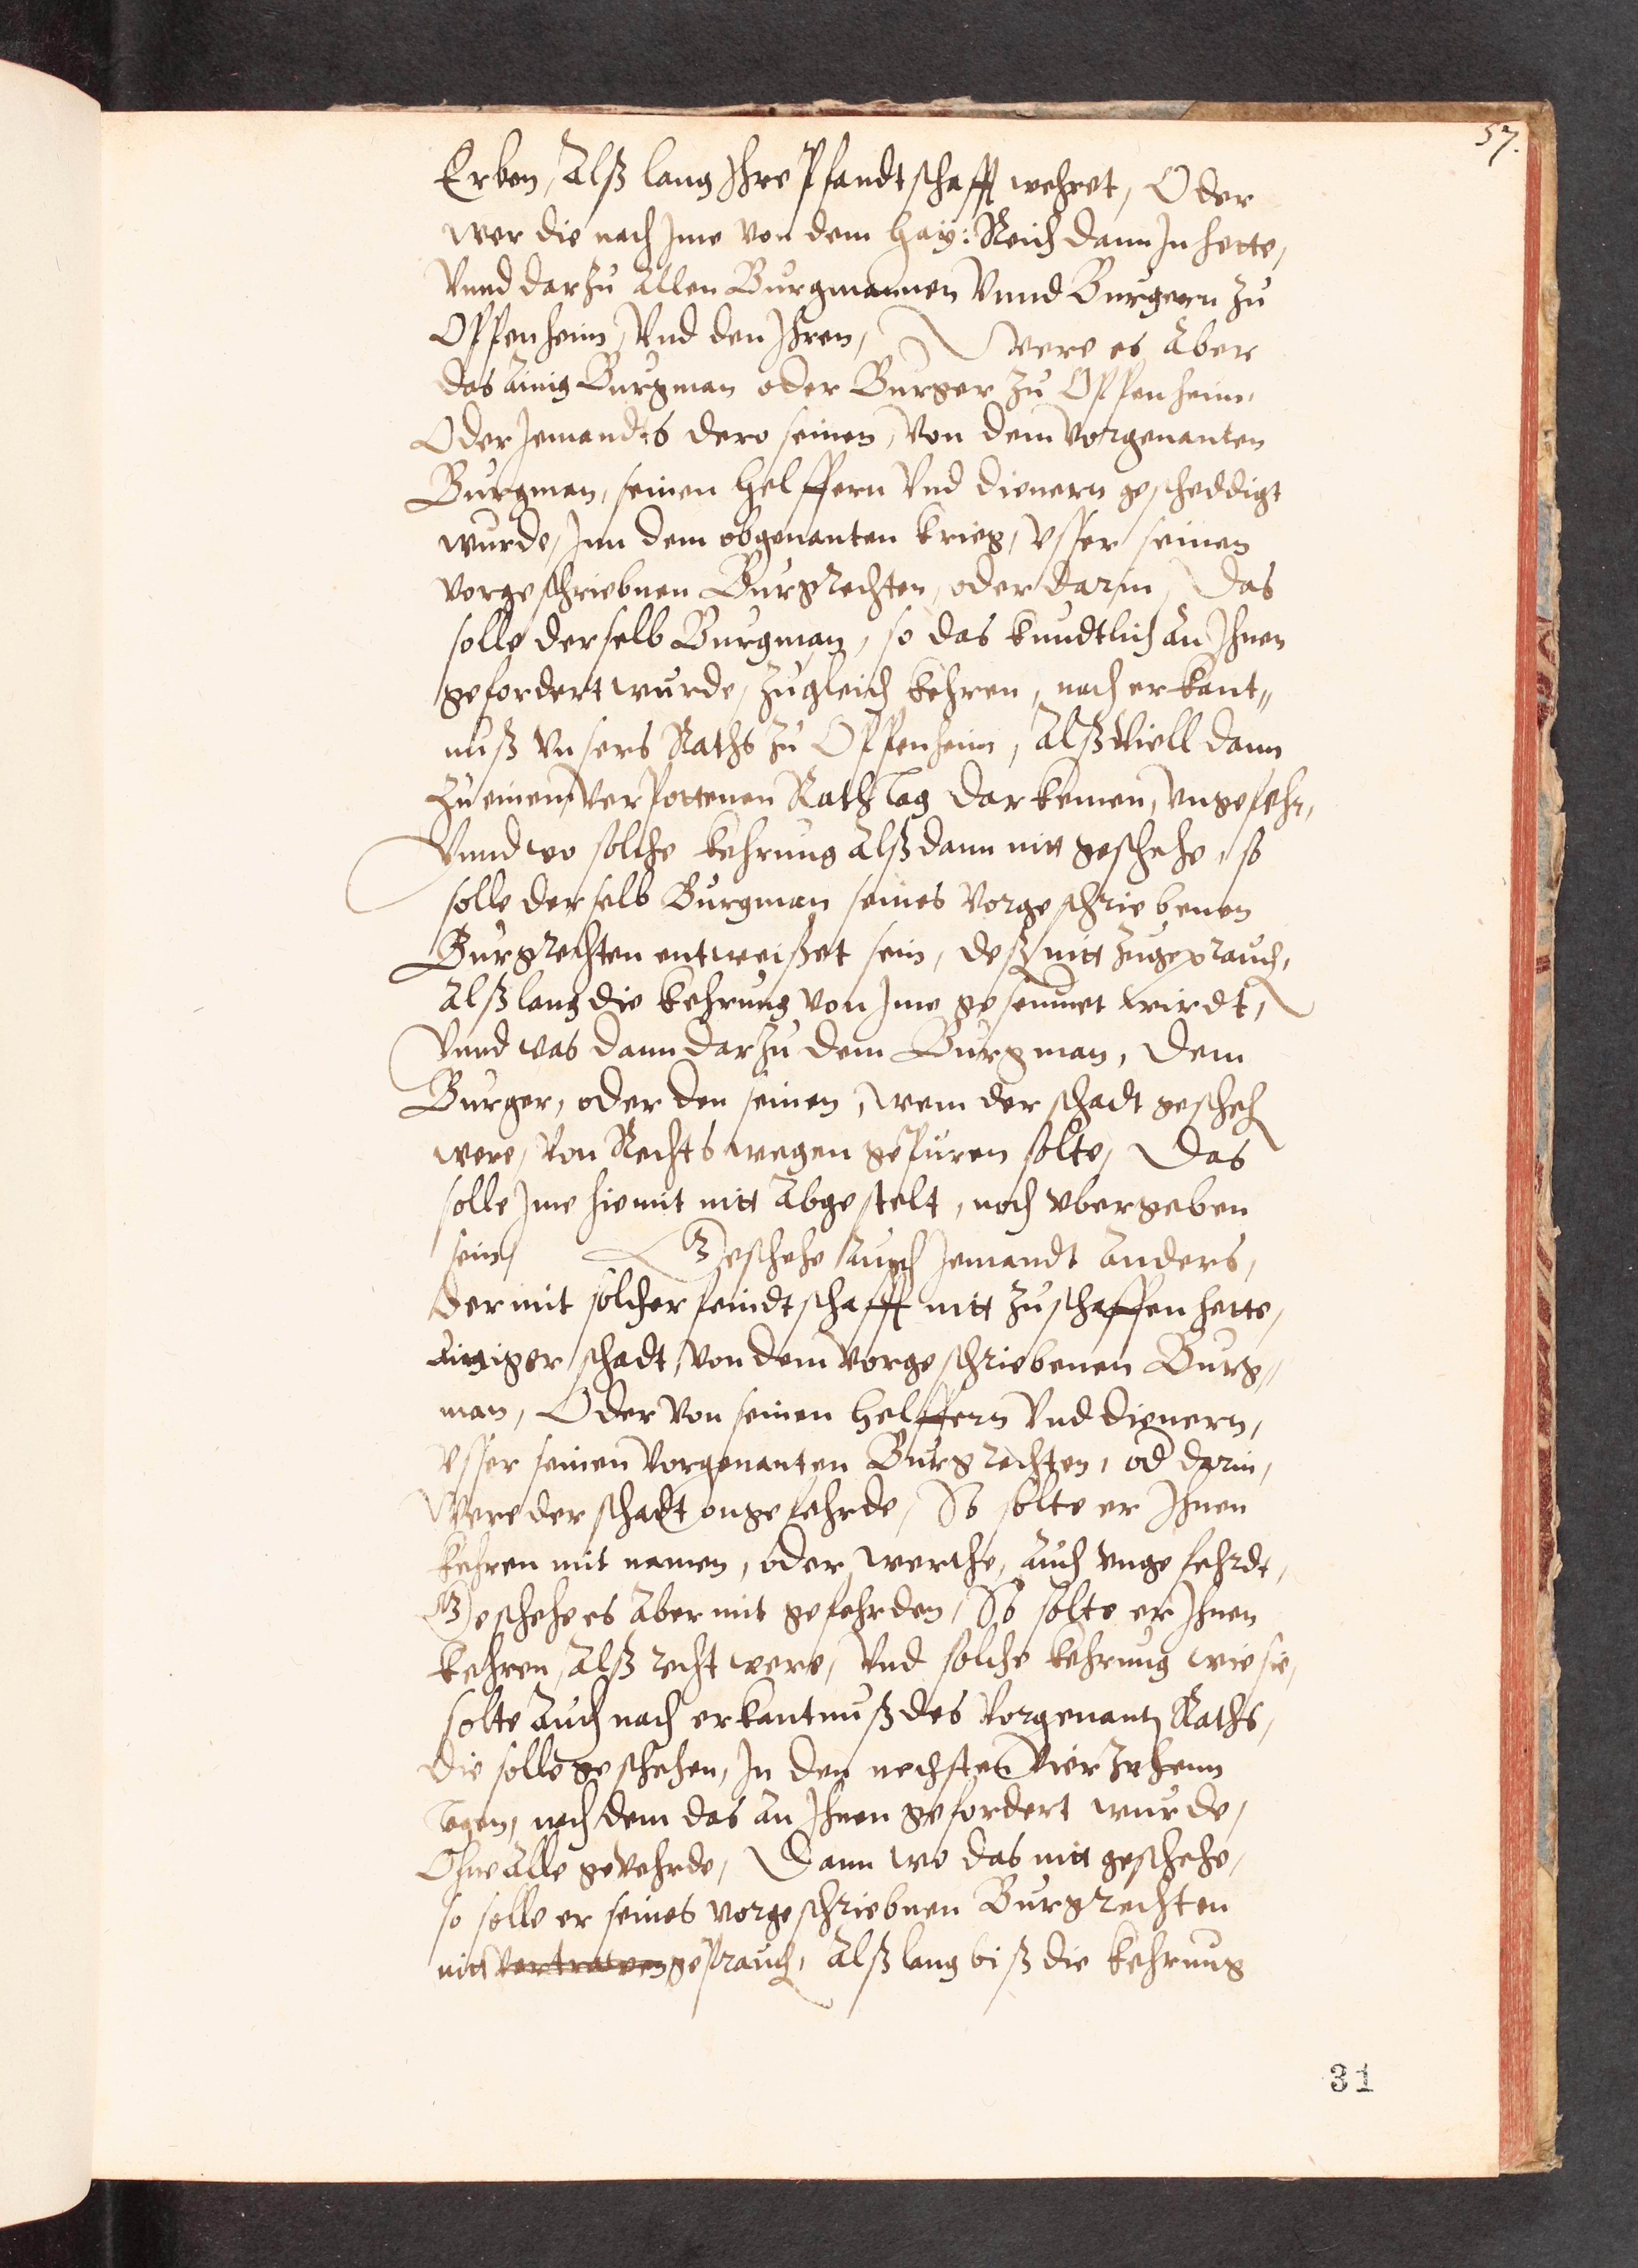 57.
Erben, Alß lang Ihre Pfandtschafft wehret, Oder
wer die nach Ime von dem Hay: Reich dann In hette,
Vnnd darzu allen Burgmannen Vnnd Burgern zu
Oppenheim, Vnd den Ihren, Were es aber
das ainig Burgman oder Burger zu Oppenheim,
Oder Jemandts dero seinen, von dem vorgenanten
Burgman, seinen Helffern Vnd dienern gescheddigt
wurde, Inn dem obgenanten krieg, Vsser seinen
vorgeschriebnen Burgrechten, oder darin, Das
solle derselb Burgman, so das kundtlich an Ihnen
gefordert wurde, zugleich kehren, nach erkant„
nuß Vnsers Raths zu Oppenheim, Alß Viell dann
zu einem Verpottenen Rathstag dar kemen, vngefehr,
Vnnd wo solche kehrung Alß dann nitt geschehe, so
solle derselb Burgman seines vorgeschriebenen
Burgrechten entweißet sein, deß nitt zugeprauch,
Alß lang die kehrung von Ime gesennet wirdt,
Vnnd was dann darzu dem Burgman, dem
Burger, oder den seinen, wem der schadt gescheh
were, Von Rechts wegen gepüren solte, Das
solle Ime hiemit nitt Abgestelt, noch vbergeben
sein, Geschehe auch Jemandt anders,
der mit solcher feindtschafft nitt zuschaffen hette,
ainiger schadt, von dem vorgeschriebenen Burg„
man, Oder von seinen Helffern Vnd dienern,
Vsser seinen vorgenanten Burgrechten, od darin,
Were der schadt ongefehrde, So solte er Ihnen
kehren mit namen, oder werthe, auch vngefehrdt,
Geschehe es Aber mit gefehrden, So solte er Ihnen
kehren, Alß recht were, Vnd solche kehrung wie sie,
solte Auch nach erkantnuß des vorgenantn Raths,
die solle geschehen, In den nechsten Vierzehenn
tagen, nach dem das an Ihnen gefordert wurde,
Ohne alle gevehrde, Dann wo das nitt geschehe,
so solle er seines vorgeschriebnen Burgrechten
nitt vertratven geprauch, Alß lang biß die kehrung
31